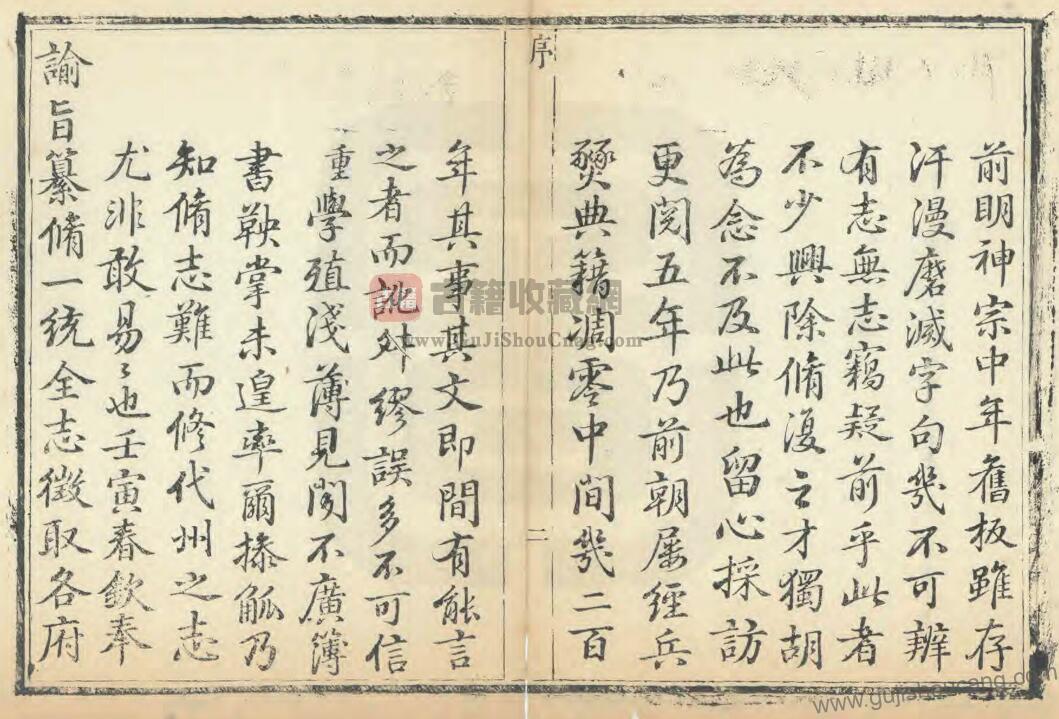 前明神宗中年舊板雖存
汗漫磨滅字句幾不可辨
有志無志竊疑前乎此者
不少興除脩復之才獨胡
為念不及此也留心採訪
更閱五年乃前朝屢經兵
燹典籍凋零中間幾二百
序
二
年其事其文即間有能言
之者而訛舛繆誤多不可信
重學殖淺薄見聞不廣簿
書鞅掌未遑率爾搽觚乃
知脩志難而修代州之志
尤非敢易〻也壬寅春欽奉
諭旨纂脩一統全志徵取各府
古籍收藏網
www.GuJiShouCang.com
www.gujishoucang.com